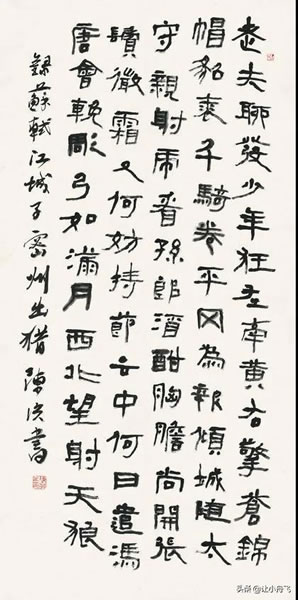 老夫聊發少年狂左牽黃右擎蒼錦
帽貂裘千騎卷平冈為報傾城随太
守親射虎看孫郎酒酣胸膽尚開張
鬢微霜又何妨持節云中何日遣馮
唐會輓彫弓如滿月西北望射天狼
錄蘇軾江城子密州出獵 陳洪書
头条 @让小舟飞